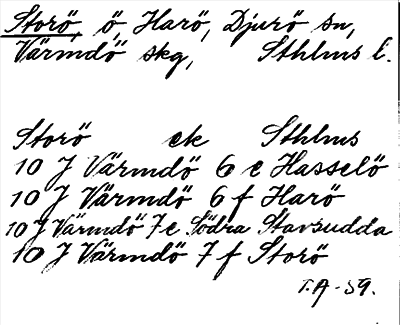 Storö, ö, Harö, Djurö sn,
Värmdö skg, Sthlms l.
Storö ek Sthlms
10 J Värmdö 6 e Hasselö
10 J Värmdö 6 f Harö
10 J Värmdö 7 e Södra Stavsudda
10 J Värmdö 7 f Storö
T.A -59.